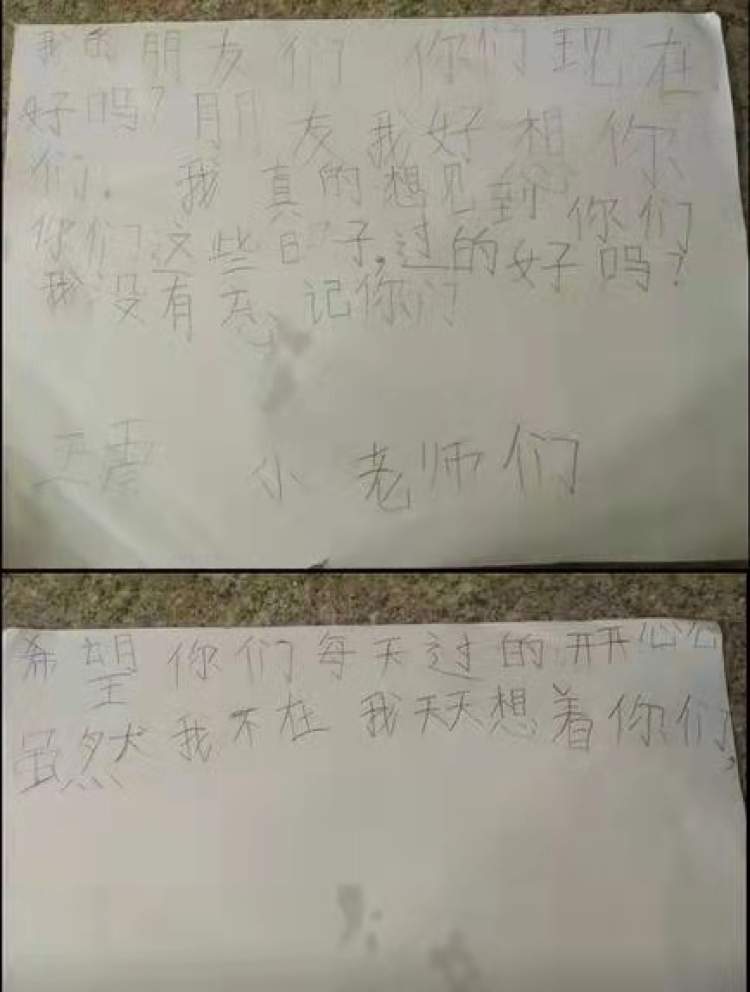 我的朋友们 你们现在
好吗?朋友我好想你
们. 我真的想见到你们
你们这些日子,过的好吗?
我没有忘记你们
小老师们
希望你们每天过的开开心心
虽然我不在 我天天想着你们,